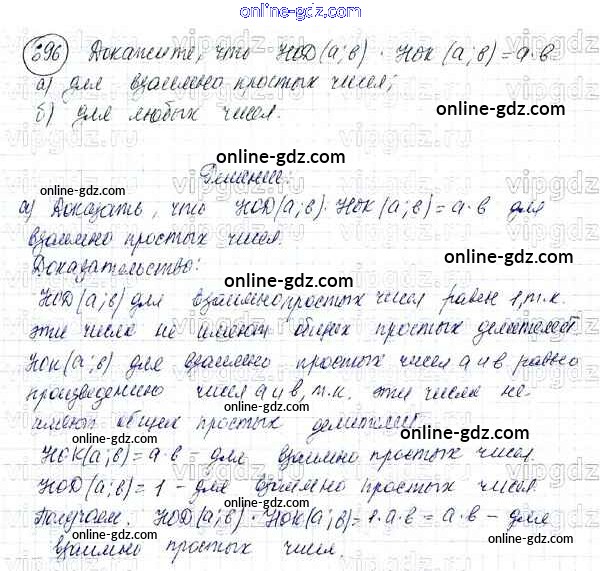 online-gdz.com
396 Докажите, что НОД(а;в) · НОК(а;в)=а·в
а) для взаимно простых чисел;
б) для любых чисел.
online-gdz.com
online-gdz.com
Решение.
online-gdz.com
online-gdz.com
а) Доказать, что НОД(а;в)·НОК(а;в)=а·в для
взаимно простых чисел.
online-gdz.com
Доказательство:
online-gdz.com
НОД(а;в) для взаимно простых чисел равен 1, т.к.
эти числа не имеют общих простых делителей.
online-gdz.com
НОК(а;в) для взаимно простых чисел а и в равно
произведению чисел а и в, т.к. эти числа не
online-gdz.com
имеют общих простых делителей.
online-gdz.com
online-gdz.com
НОК(а;в)=а·в - для взаимно простых чисел.
НОД(а;в)=1 - для взаимно простых чисел.
online-gdz.com
Получаем. НОД(а;в)·НОК(а;в)=1·а·в=а·в - для
online-gdz.com
взаимно простых чисел.
online-gdz.com
vipgdz